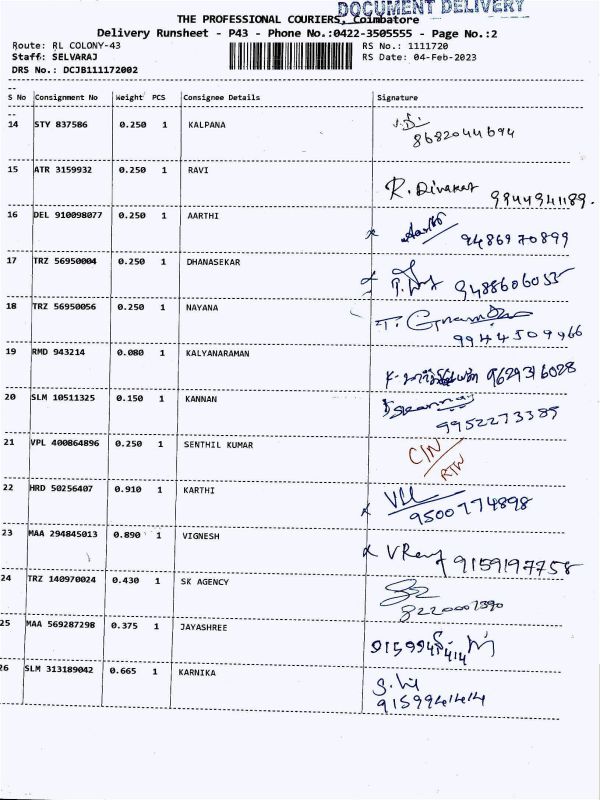 DOCUMENT DELIVERY
THE PROFESSIONAL COURIERS, Coimbatore
Delivery Runsheet - P43 - Phone No.:0422-3505555 - Page No.:2
Route: RL COLONY-43 RS No.: 1111720
Staff: SELVARAJ RS Date: 04-Feb-2023
DRS No.: DCJB111172002
S No Consignment No Weight PCS Consignee Details Signature
14 STY 837586 0.250 1 KALPANA
8682044694
15 ATR 3159932 0.250 1 RAVI
R. Divakar 9944941189.
16 DEL 910098077 0.250 1 AARTHI
9486970899
17 TRZ 56950004 0.250 1 DHANASEKAR
9488606055
18 TRZ 56950056 0.250 1 NAYANA
9944509966
19 RMD 943214 0.080 1 KALYANARAMAN
9629316028
20 SLM 10511325 0.150 1 KANNAN
9952273385
21 VPL 400864896 0.250 1 SENTHIL KUMAR
CIN
RTN
22 HRD 50256407 0.910 1 KARTHI
9500774898
23 MAA 294845013 0.890 1 VIGNESH
9159197758
24 TRZ 140970024 0.430 1 SK AGENCY
8220007390
25 MAA 569287298 0.375 1 JAYASHREE
26 SLM 313189042 0.665 1 KARNIKA
9159941414